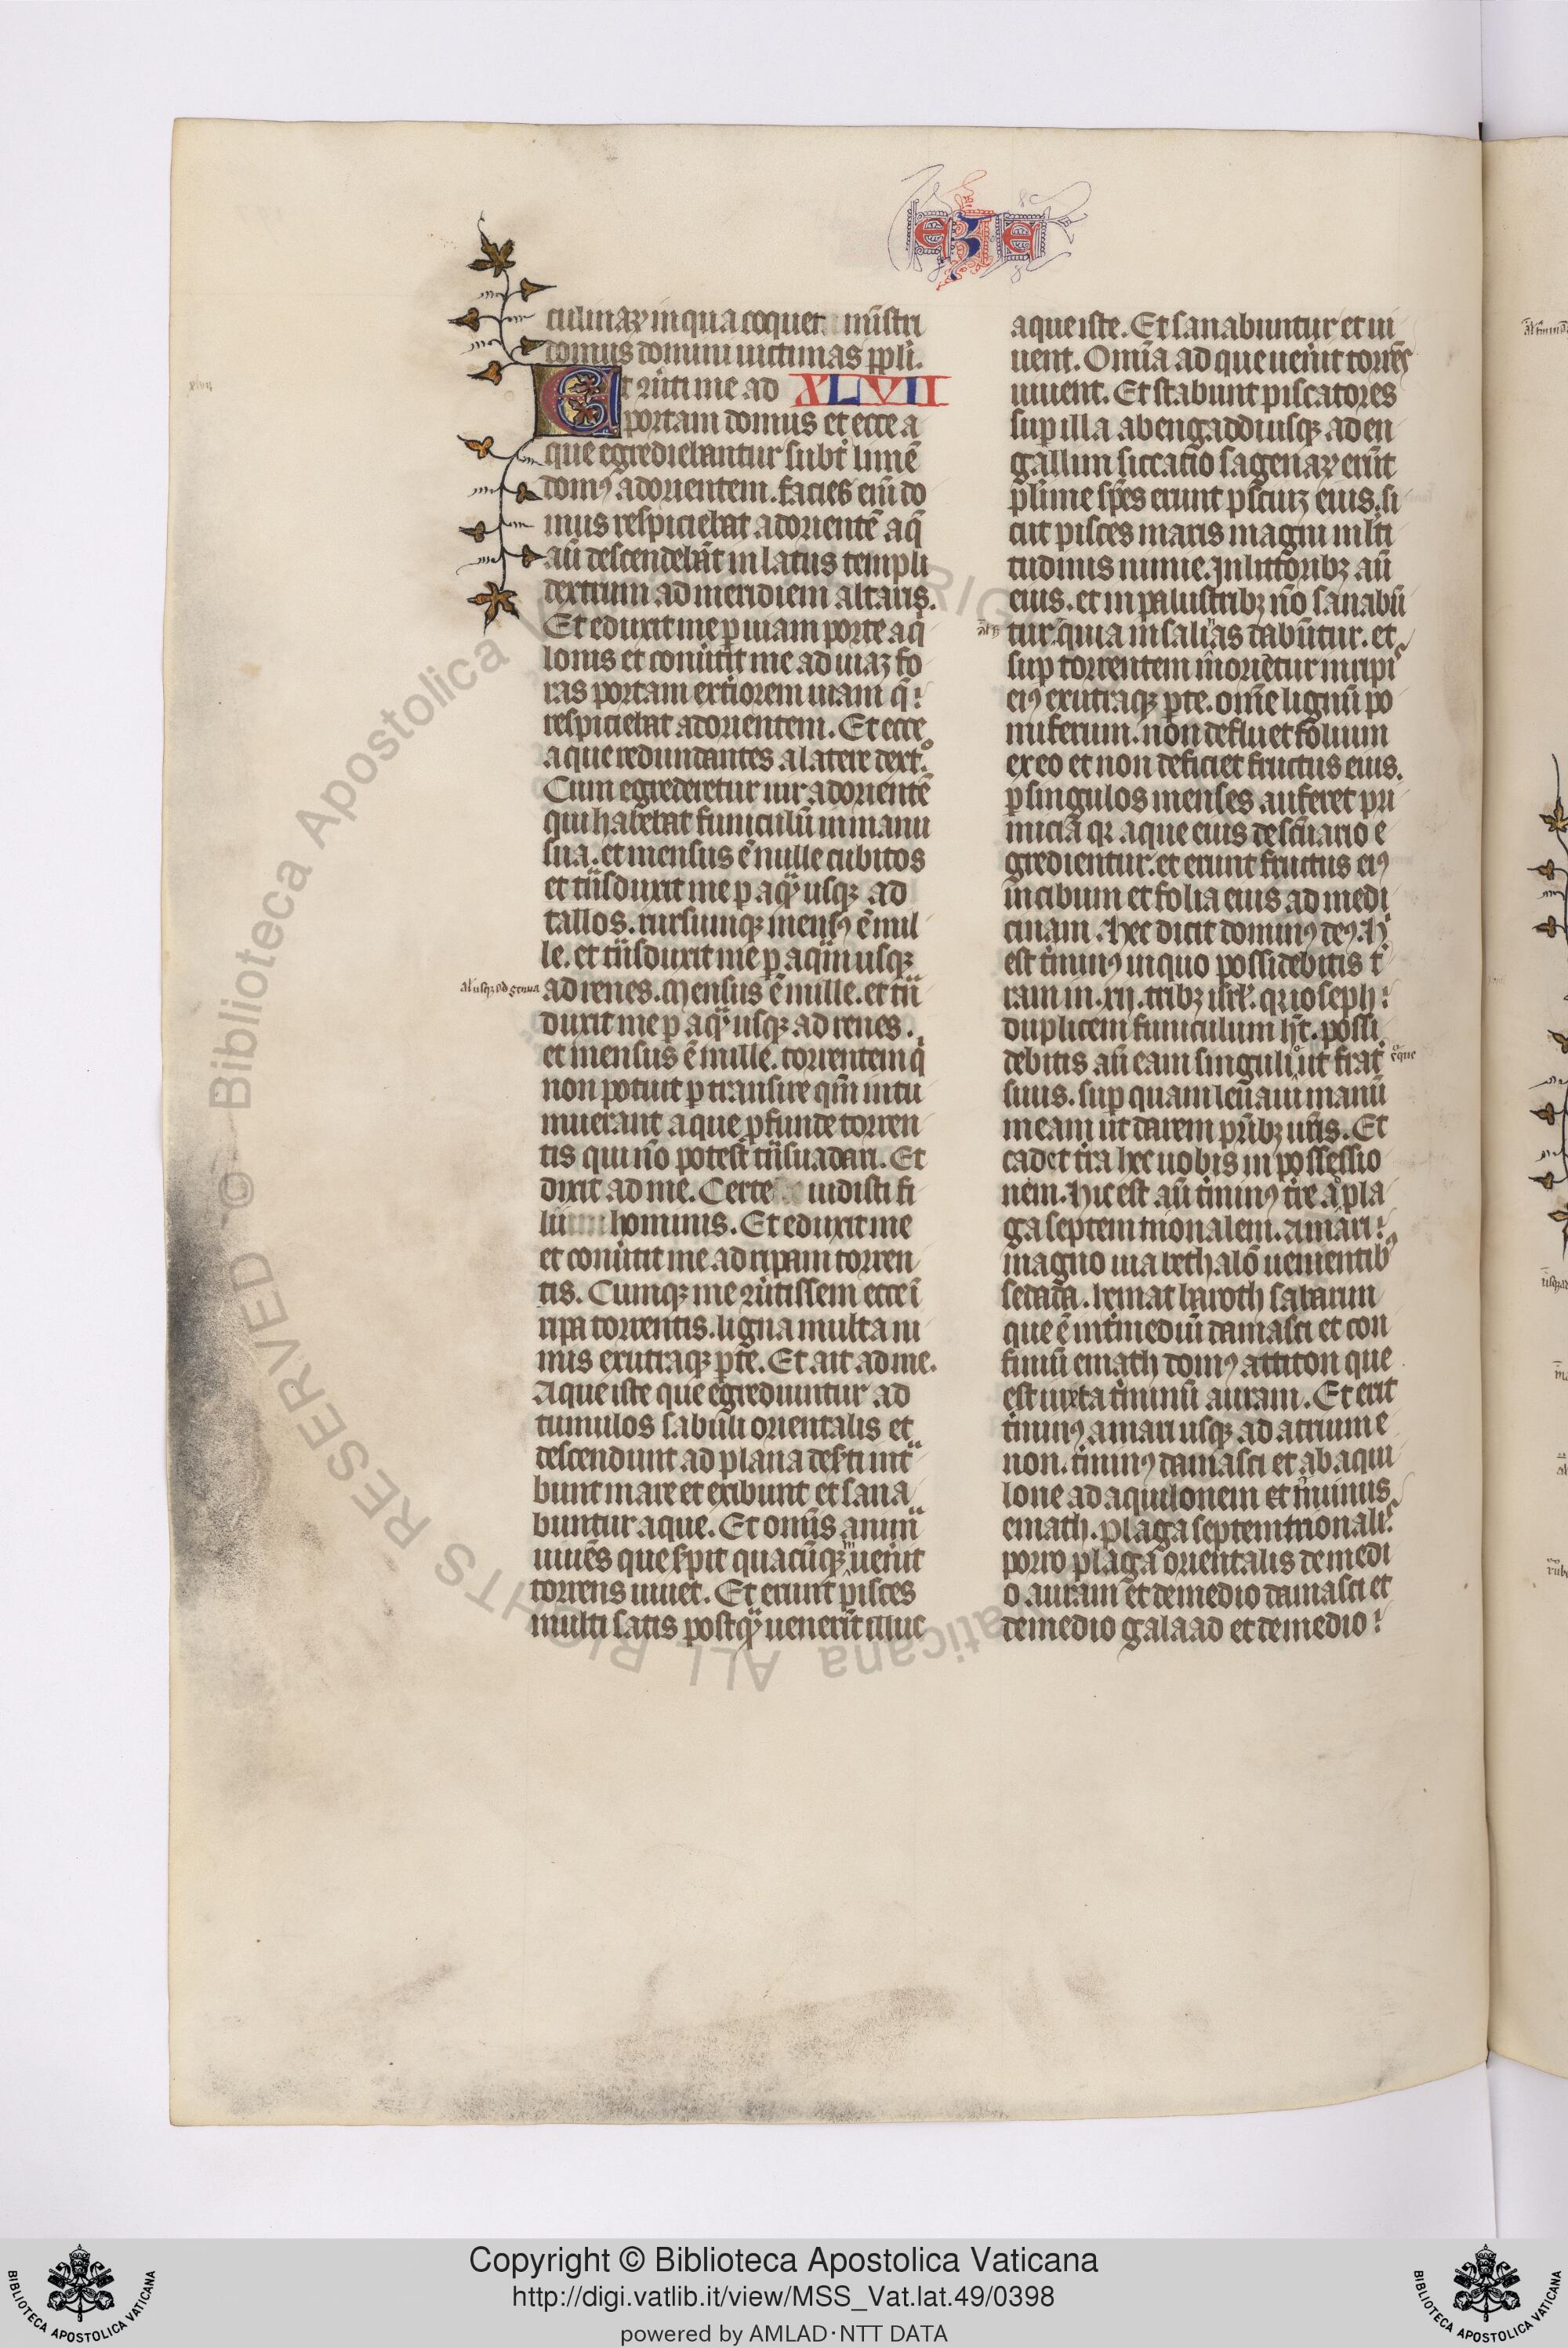 EZE
culinaꝝ in qua coquet ministri
domus domini uictimas ppli.
Et ꝯuˀtit me ad XLVII
portam domus et ecce a
que egrediebantur subt limē
domꝰ ad orientem. facies eni do
mus respiciebat ad orientē aq̄
aū descendebāt in latus templi
dextrum ad meridiem altaris.
Et eduxit me p uiam porte aq̇
lonis et conuˀtit me ad uiaꝫ fo
ras portam exteriorem uiam q̄
respiciebat ad orientem. Et ecce
aque redundantes a latere dextº.
Cum egrederetur uir ad orientē
qui habebat funiculū in manu
sua. et mensus ē mille cubitos
et tnsduxit me p aqᵃꝫ usqꝫ ad
tallos. rursumqꝫ mensꝰ ē mil
le. et tnsduxit me p aqᵃm usqꝫ
al usqꝫ ad genua
ad renes. Mensus ē mille. et tns
duxit me p aqᵃꝫ usqꝫ ad renes.
et mensus ē mille. torrentem q̄
non potui ptransire qm̄ intu
muerant aque pfunde torren
tis qui nō potest tnsuadari. Et
dixit ad me. Certe uidisti fi
li hominis. Et eduxit me
et conuˀtit me ad ripam torren
tis. Cumqꝫ me ꝯuˀtissem ecce ī
ripa torrentis. ligna multa ni
mis ex utraqꝫ pte. Et ait ad me.
Aque iste que egrediuntur ad
tumulos sabuli orientalis et
descendunt ad plana desˀti intᵃ
bunt mare et exibunt et sana
buntur aque. Et omnis animᵃ
uiuēs que sˀpit quacūqꝫ uenˀit
torrens uiuet. Et erunt pisces
multi satis postqᵃꝫ uenerit illuc
aque iste. Et sanabuntur et ui
uent. Omia ad que uenˀit torrēs
uiuent. Et stabunt piscatores
sup illa ab engaddi usqꝫ ad en
gallim siccatio sagenaꝝ erūt
plime spēs erunt psciuꝫ eius. si
cut pisces maris magni mlti
tudinis nimie. In littoribꝫ aū
eius. et in palustribꝫ nō sanabū
tur. quia in salinas dabūtur. et
sup torrentem inorietur in ripis
eiꝰ ex utraqꝫ pte. om̄e lignū po
miferum. non defluet folium
ex eo et non deficiet fructus eius.
p singulos menses auferet pri
micia qꝛ aque eius de scuario e
gredientur. et erunt fructus eiꝰ
in cibum et folia eius ad medi
cinam. Hec dicit dominꝰ deꝰ. hᶜ
est tˀminꝰ in quo possidebitis tˀ
ram in .xii. tribꝫ isrl. qꝛ ioseph
duplicem funiculum ht. possi
debitis aū eam singuli ut fratˀ
eque
suus. sup quam leuaui manū
meam ut darem ptribꝫ uris. Et
cadet tˀra hec uobis in possessio
nem. Hic est aū tˀminꝰ tˀre ad pla
ga septemtrionalem. a mari
magno uia bethalō uenientibꝰ
sedada. hemat baroth sabarim
que ē int mediū damasci et con
finiū emath domꝰ atticon que
est iuxta tˀminū auram. Et erit
tˀminꝰ a mari usqꝫ ad atrium e
non. tˀminꝰ damasci et ab aqui
lone ad aquilonem et tˀminus
emath. plaga septemtrionalis.
porro plaga orientalis de medi
o auram et de medio damasci et
de medio galaad et de medio
© Biblioteca Apostolica Vaticana ALL RIGHTS RESERVED
Copyright © Biblioteca Apostolica Vaticana
http://digi.vatlib.it/view/MSS_Vat.lat.49/0398
powered by AMLAD·NTT DATA
BIBLIOTECA APOSTOLICA VATICANA
BIBLIOTECA APOSTOLICA VATICANA